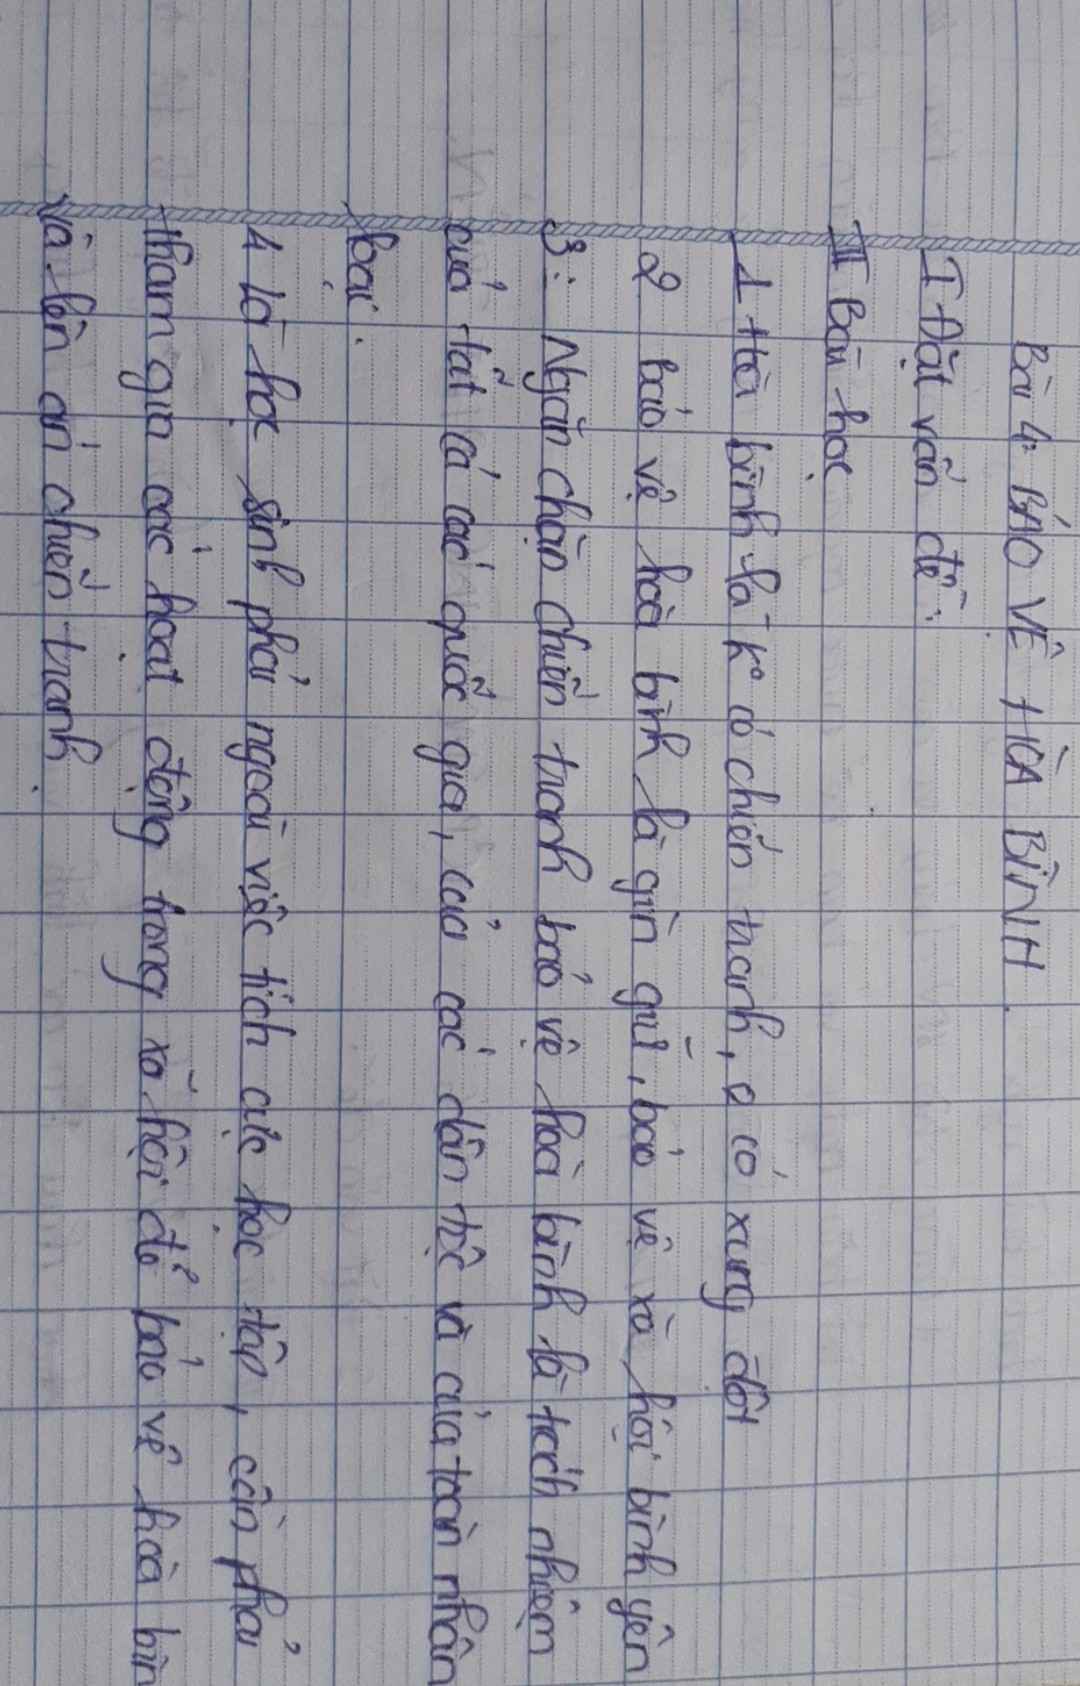 Bài 4: BẢO VỆ HÒA BÌNH.
I Đặt vấn đề:
II Bài học
1 Hòa bình là ko có chiến tranh, o có xung đột
2 bảo vệ hoà bình là gìn giữ, bảo vệ xã hội bình yên
3: Ngăn chặn chiến tranh bảo vệ hoà bình là trách nhiệm
của tất cả các quốc gia, của các dân tộc và của toàn nhân
loại.
4 là học sinh phải ngoài việc tích cực học tập, cần phải
tham gia các hoạt động trong xã hội để bảo vệ hoà bìn
và lên án chiến tranh.